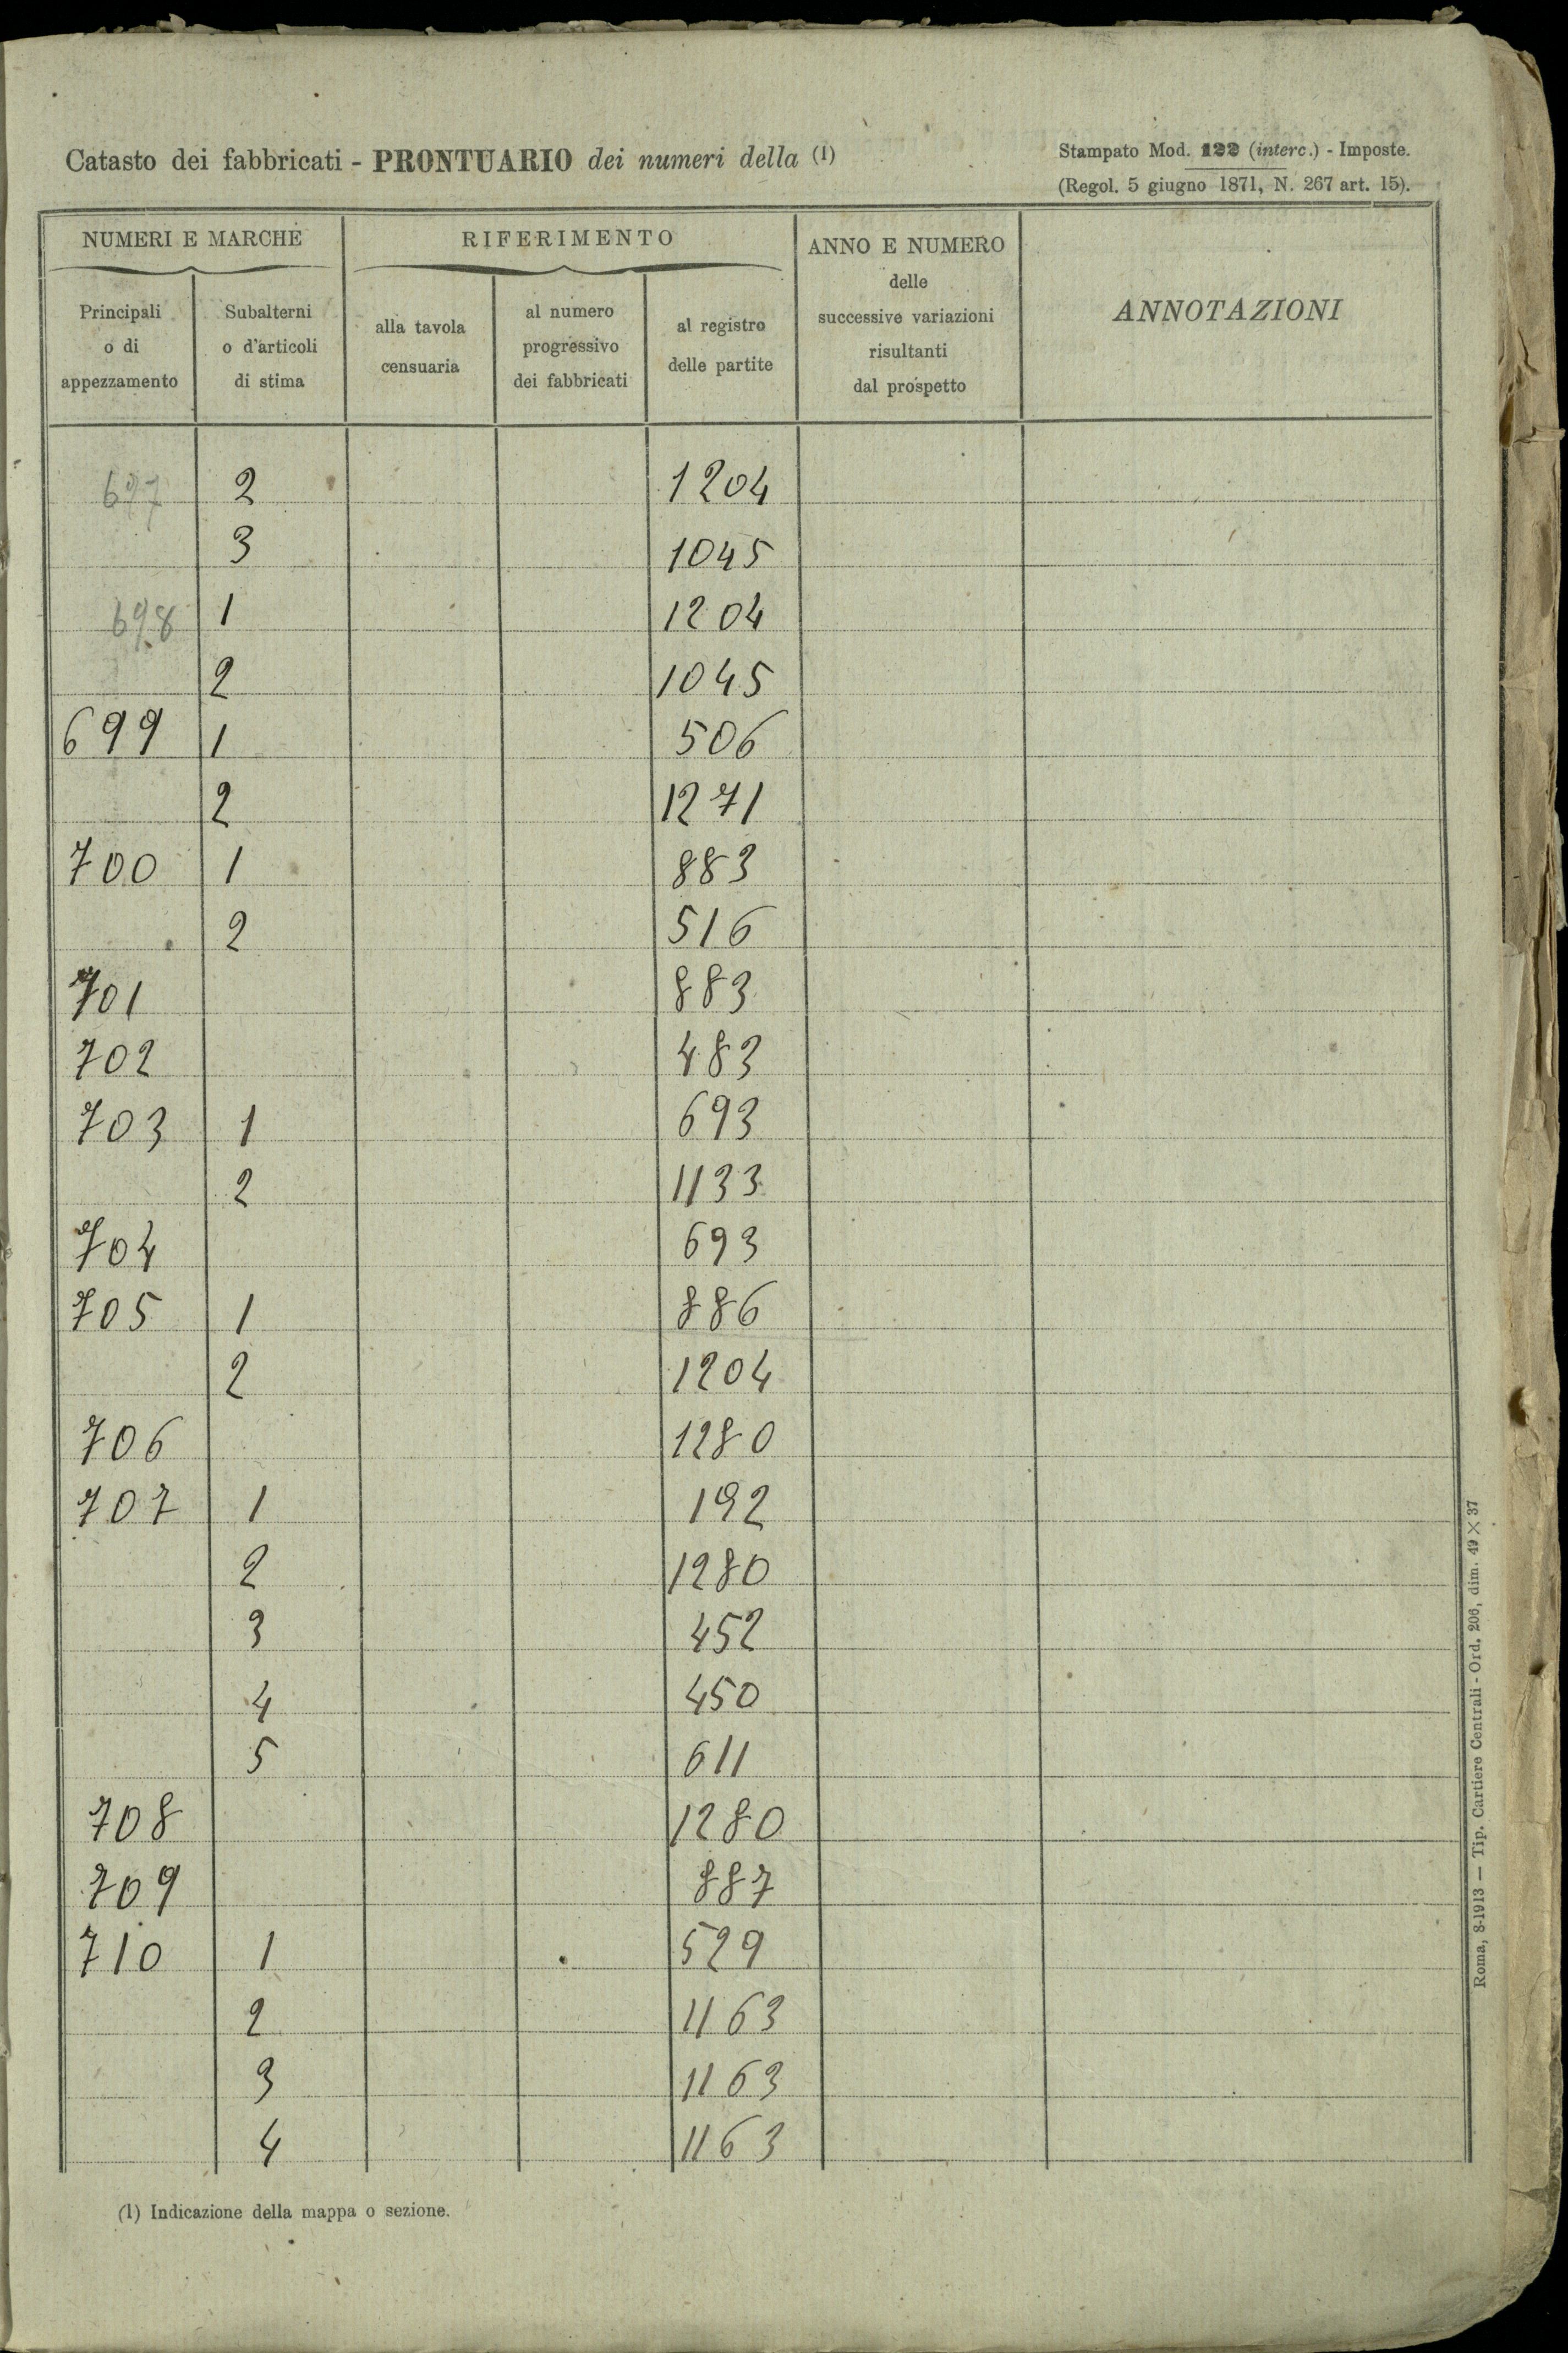 Catasto dei fabbricati - PRONTUARIO dei numeri della (1)
Stampato Mod. 122 (interc.) - Imposte.
(Regol. 5 giugno 1871, N. 267 art. 15).
NUMERI E MARCHE
RIFERIMENTO
ANNO E NUMERO
delle
successive variazioni
risultanti
dal prospetto
ANNOTAZIONI
Principali
o di
appezzamento
Subalterni
o d'articoli
di stima
alla tavola
censuaria
al numero
progressivo
dei fabbricati
al registro
delle partite
697 2 1204
3 1045
698 1 1204
2 1045
699 1 506
2 1271
700 1 883
2 516
701 883
702 483
703 1 693
2 1133
704 693
705 1 886
2 1204
706 1280
707 1 192
2 1280
3 452
4 450
5 611
708 1280
709 887
710 1 529
2 1163
3 1163
4 1163
(1) Indicazione della mappa o sezione.
Roma, 8-1913 — Tip. Cartiere Centrali - Ord. 206, dim. 49 × 37